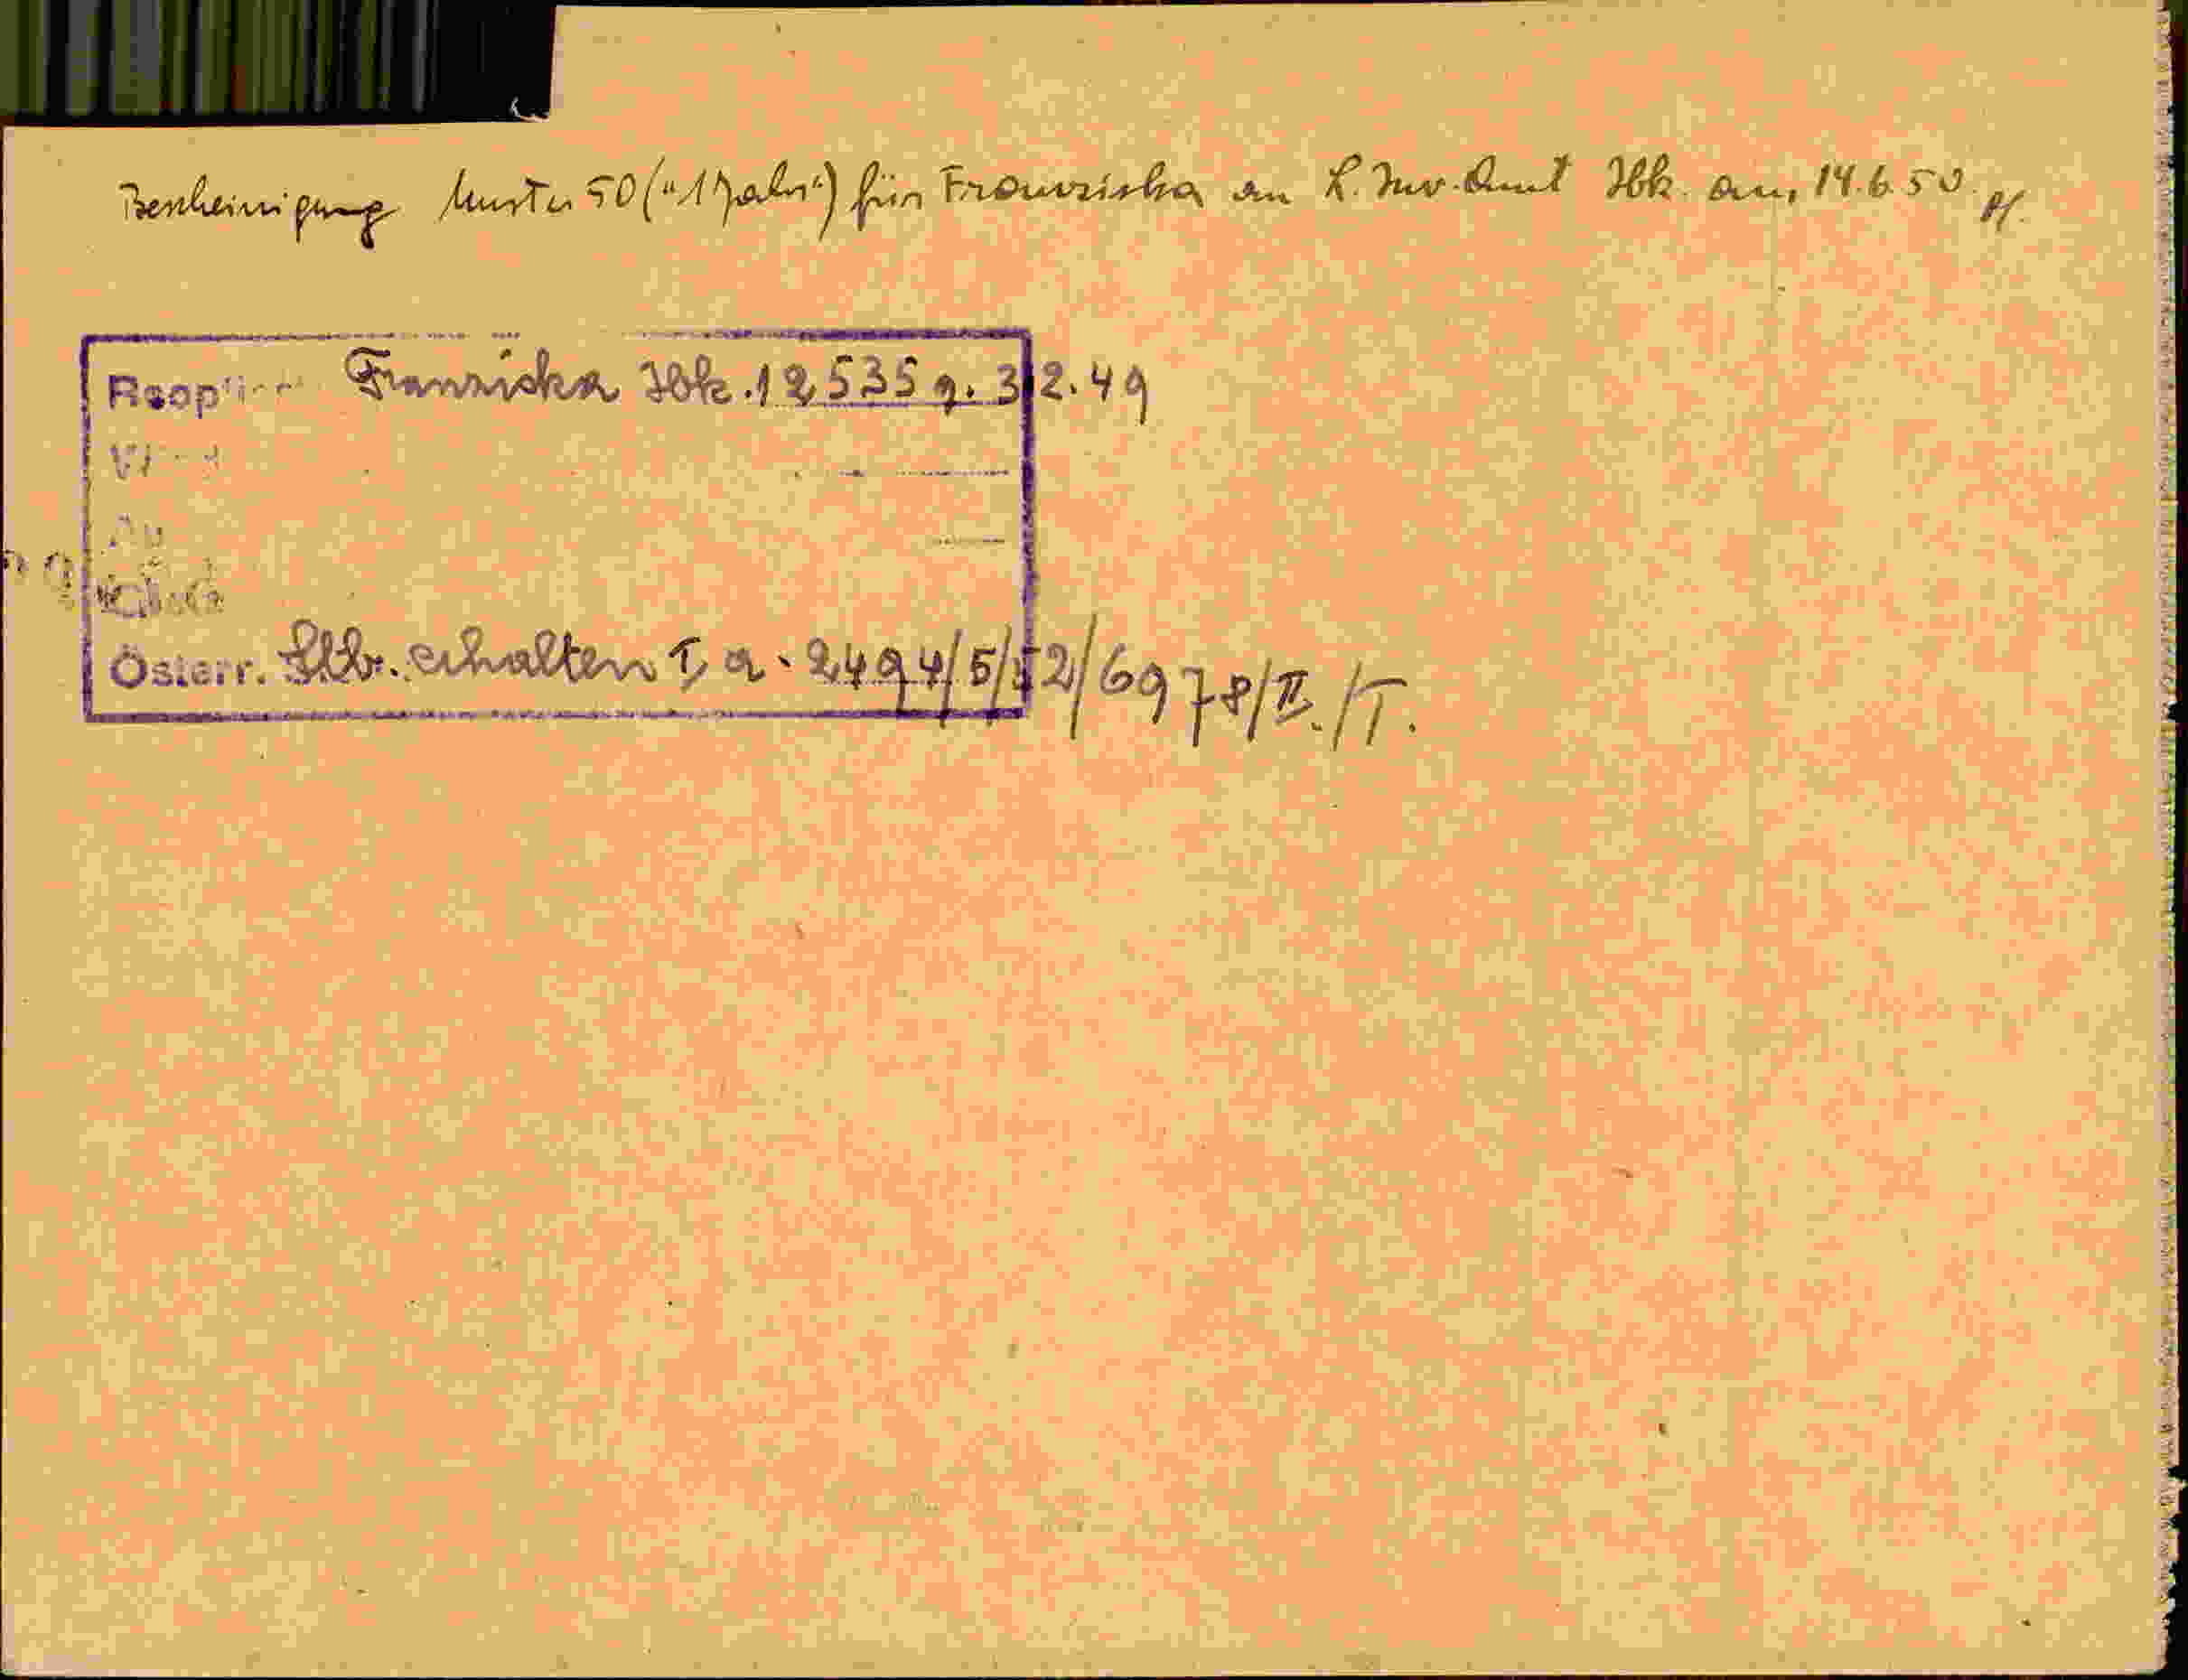 Bescheinigung Muster 50 ("1 Jahr") für Franziska an L. Inv. Amt Ibk. am, 14.6.50.
Franziska Ibk. 12535 g. 3.2.49
Österr. Stb. erhalten I a - 2494/5/52/6978/II./T.